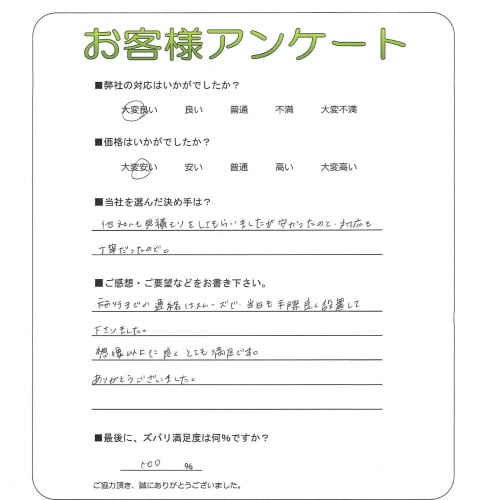 お客様アンケート
■弊社の対応はいかがでしたか？
大変良い 良い 普通 不満 大変不満
■価格はいかがでしたか？
大変安い 安い 普通 高い 大変高い
■当社を選んだ決め手は？
他社にも見積もりをしてもらいましたが安かったのと、対応も
丁寧だったので。
■ご感想・ご要望などをお書き下さい。
施行までの連絡はスムーズで、当日も手際良く設置して
下さりました。
想像以上に良く とても満足です。
ありがとうございました。
■最後に、ズバリ満足度は何%ですか？
100 %
ご協力頂き、誠にありがとうございました。